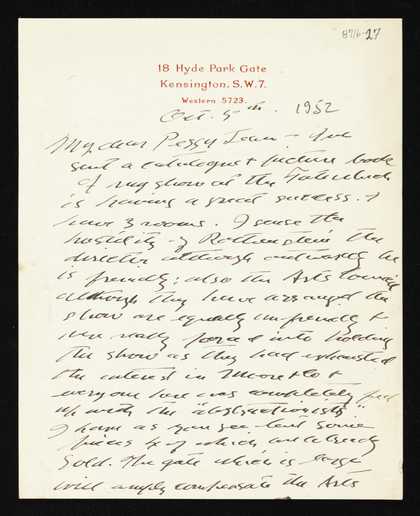 8716-27
18 Hyde Park Gate
Kensington. S.W.7.
Western 5723.
Oct. 5th. 1952
My dear Peggy Jean – I've
sent a catalogue & picture book
of my show at the Tate which
is having a great success. I
have 3 rooms. I sense the
hostility of Rothenstein the
director although outwardly he
is friendly; also the Arts Council
although they have arranged the
show are equally unfriendly &
were really forced into holding
the show as they had exhausted
the interest in Moore &
everyone here was completely fed
up with the "abstractionists".
I have as you see lent some
pieces 4 of which are already
sold. The gate which is large
will amply compensate the Arts